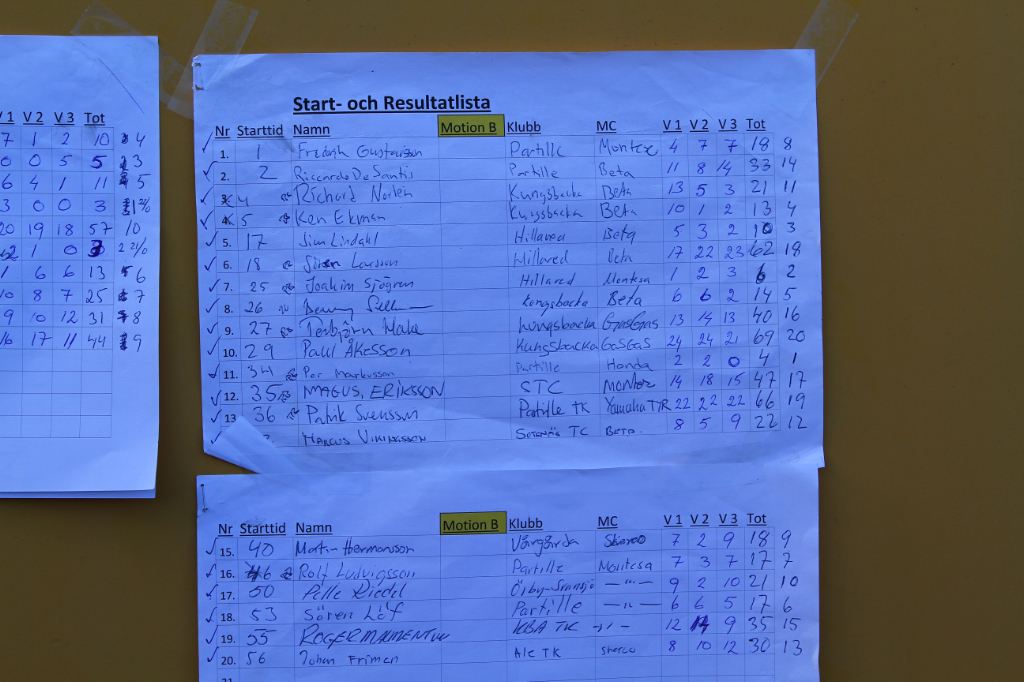 V 1 V 2 V 3 Tot
7 1 2 10 4
0 0 5 5 3
6 4 1 11 5
3 0 0 3 1
20 19 18 57 10
2 1 0 3 2
1 6 6 13 6
10 8 7 25 7
9 10 12 31 8
16 17 11 44 9
Start- och Resultatlista
Nr Starttid Namn Motion B Klubb MC V 1 V 2 V 3 Tot
1. 1 Fredrik Gustavsson Partille Montez 4 7 7 18 8
2. 2 Riccardo De Santis Partille Beta 11 8 14 33 14
3. 4 Richard Norlén Kungsbacka Beta 13 5 3 21 11
4. 5 Ken Ekman Kungsbacka Beta 10 1 2 13 4
5. 17 Simon Lindahl Hillared Beta 5 3 2 10 3
6. 18 Larsson Hillared Beta 17 22 23 62 18
7. 25 Joakim Sjögren Hillared Montesa 1 2 3 6 2
8. 26 Kungsbacka Beta 6 6 2 14 5
9. 27 Torbjörn Kungsbacka GasGas 13 14 13 40 16
10. 29 Paul ÅKESSON Kungsbacka GASGAS 24 24 21 69 20
11. 34 Per Markusson Partille Honda 2 2 0 4 1
12. 35 MAGUS, ERIKSSON STC Montez 14 18 15 47 17
13 36 Patrik Svensson Partille TK Yamaha TYR 22 22 22 66 19
MARCUS VIKINGSSON Sotenäs TC Beta. 8 5 9 22 12
Nr Starttid Namn Motion B Klubb MC V 1 V 2 V 3 Tot
15. 40 Martin Hermansson Vårgårda 7 2 9 18 9
16. 46 Rolf Ludvigsson Partille Montesa 7 3 7 17 7
17. 50 Pelle Riedel Örby-Svansjö — " — 9 2 10 21 10
18. 53 Sören Löf Partille — " — 6 6 5 17 6
19. 55 ROGER KBA TK — " — 12 14 9 35 15
20. 56 Johan Friman Ale TK Sherco 8 10 12 30 13
21.